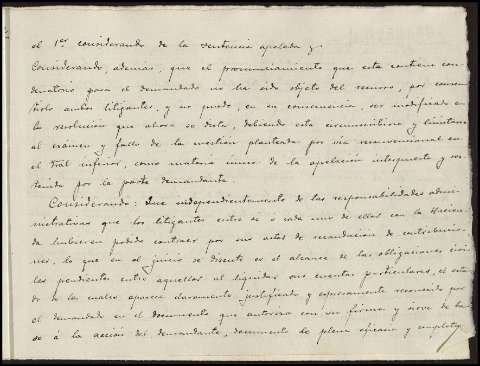 el 1er considerando de la sentencia apelada y
Considerando, ademas, que el pronunciamiento que esta contiene con-
denatorio para el demandado no ha sido objeto del recurso, por consen-
tirlo ambos litigantes, y no puede, en su consecuencia, ser modificado en
la resolución que ahora se dicta, debiendo esta circunscribirse y limitarse
al exámen y fallo de la cuestión planteada por via reconvencional en
el Tral inferior, como materia única de la apelación interpuesta y sos-
tenida por la parte demandante.
Considerando: Que independientemente de las responsabilidades admi-
nistrativas que los litigantes entre sí o cada uno de ellos con la Hacien-
da hubieren podido contraer por sus actos de recaudación de contribucio-
nes, lo que en el juicio se discute es el alcance de las obligaciones civi-
les pendientes entre aquellos al liquidar sus cuentas particulares, el esta-
do de las cuales aparece claramente justificado y expresamente reconocido por
el demandado en el documento que autoriza con su firma y sirve de ba-
se á la acción del demandante, documento de plena eficacia y